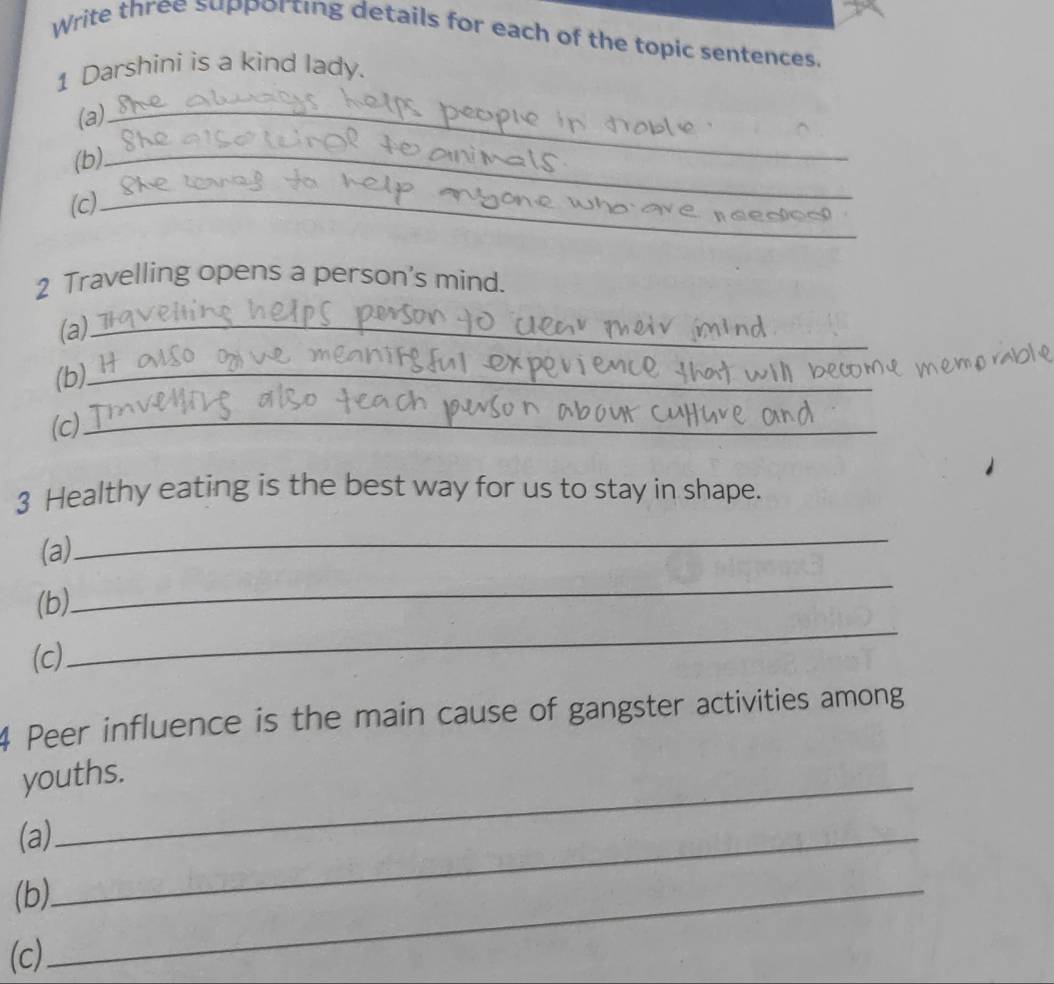 Write three supporting details for each of the topic sentences.
1 Darshini is a kind lady.
(a) She always helps people in troble.
(b) She also kind to animals.
(c) She to help anyone who are
2 Travelling opens a person's mind.
(a) Travelling helps person to clear their mind
(b) It also give meaningful experience that will become memorable
(c) Travelling also teach person about culture and
3 Healthy eating is the best way for us to stay in shape.
(a)
(b)
(c)
4 Peer influence is the main cause of gangster activities among
youths.
(a)
(b)
(c)